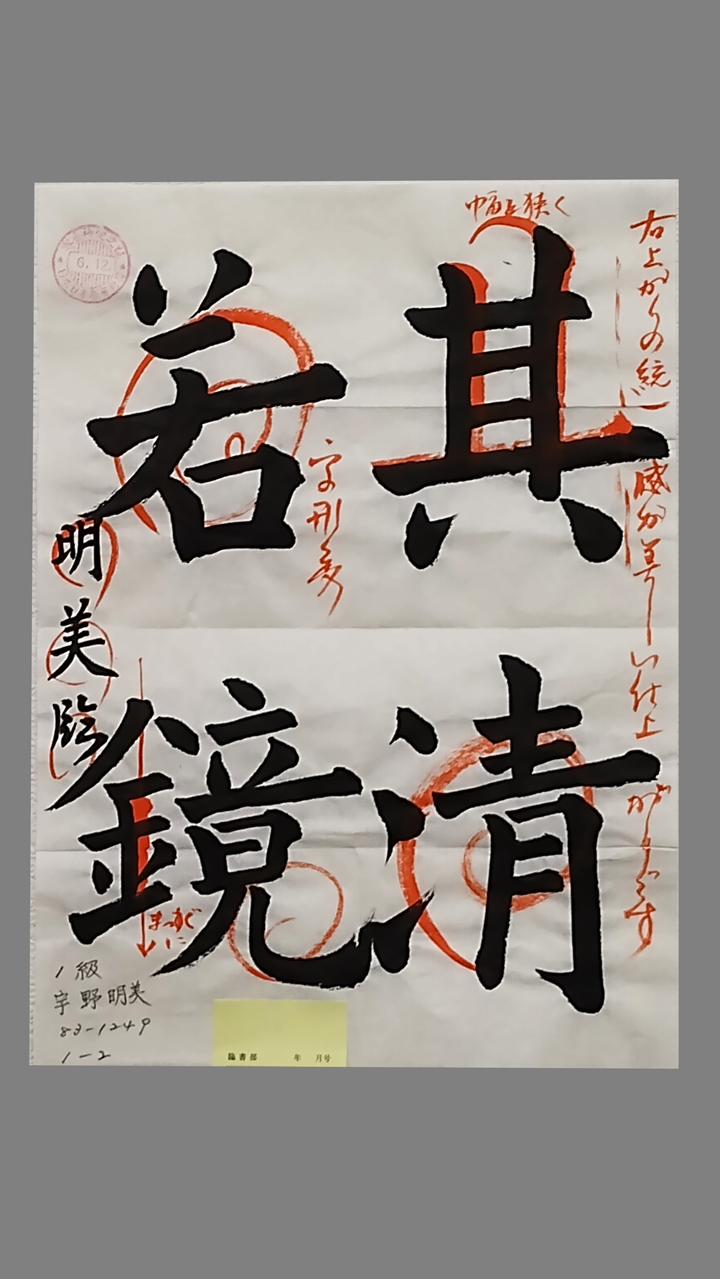 其清
若鏡
明美臨
幅を狭く
右上がりの統一感が美しい仕上がりです
字形多
まっすぐに
1級
宇野明美
83-1249
1-2
臨書部 年 月号
6.12